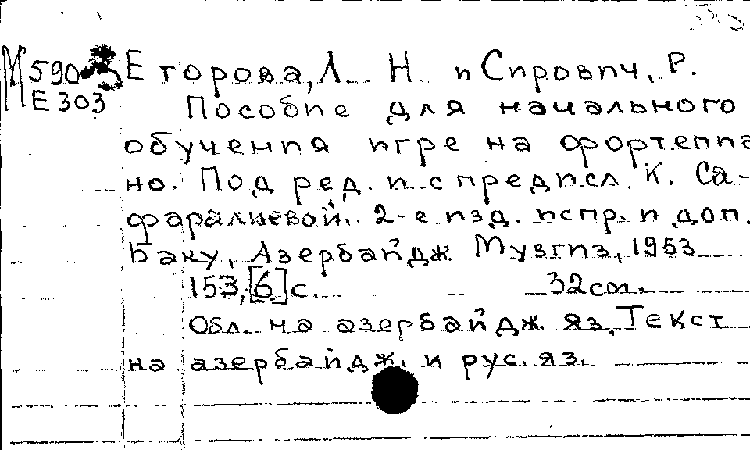 М590 Егорова, Л. Н. и Сирович, Р.
Е303 Пособие для начального
обучения игре на фортепиа-
но. Под ред. и с предисл. К. Са-
фаралиевой. 2-е изд. испр. и доп.
Баку, Азербайдж Музгиз, 1953
153, [6] с. 32 см.
Обл. на азербайдж. яз. Текст
на азербайдж. и рус. яз.